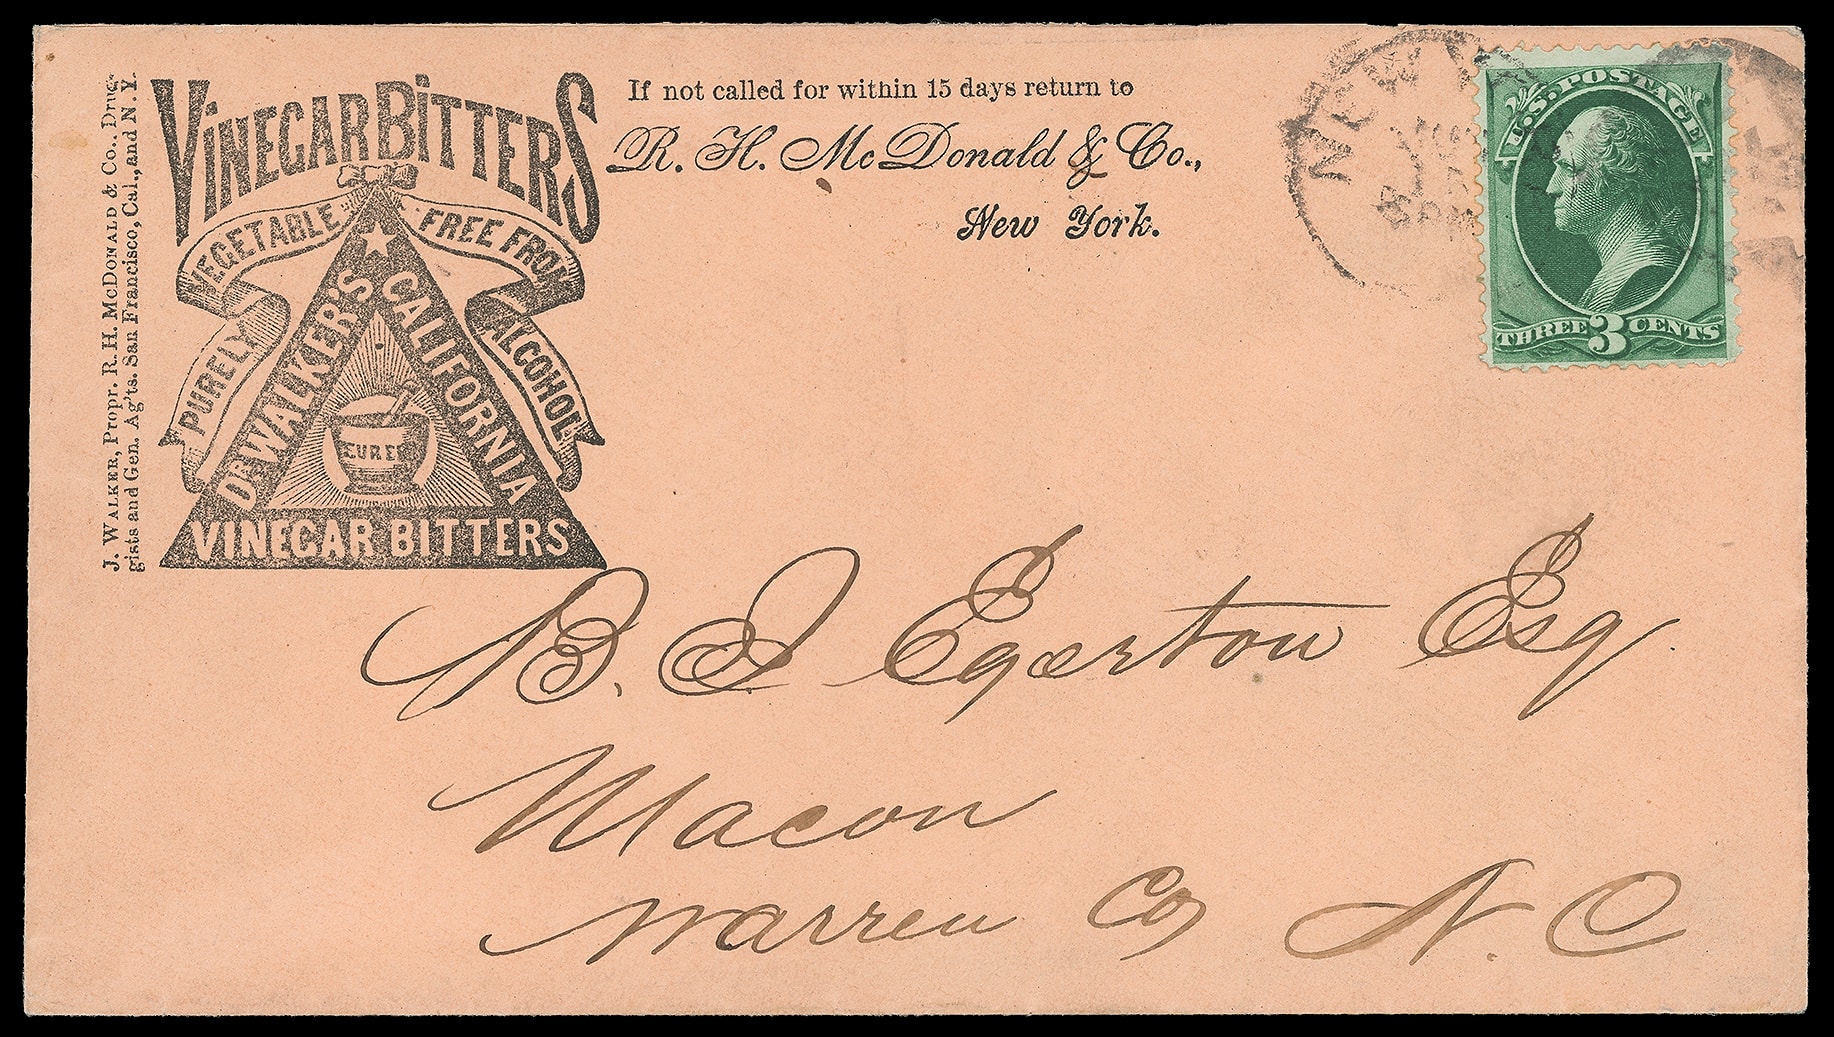 J. WALKER, Propr. R. H. McDONALD & Co., Drug-
gists and Gen. Ag'ts. San Francisco, Cal., and N. Y.
VINEGAR BITTERS
PURELY VEGETABLE FREE FROM ALCOHOL
DR WALKER'S CALIFORNIA
VINEGAR BITTERS
If not called for within 15 days return to
R. H. McDonald & Co.,
New York.
NEW
PM
U.S. POSTAGE
THREE 3 CENTS
B. J. Egerton Esq
Macon
Warren Co N. C